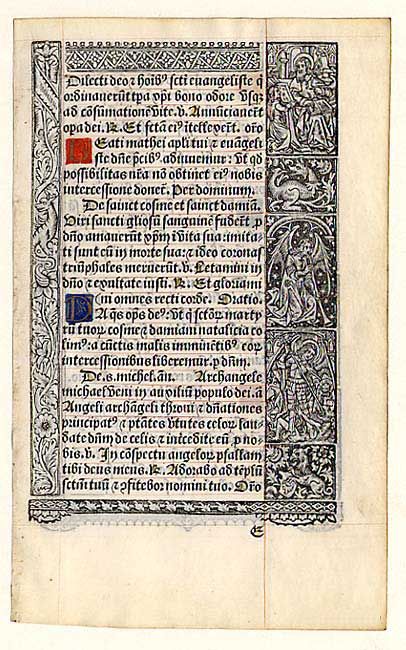 Dilecti deo ⁊ hoīb⁹ scti euangeliste q̄
ordinauerūt tpa ypī bono odore vsq̄
ad cōsumationē vite. v. Annunciauerūt
opa dei. R. Et fcta ei⁹ itelleyerūt. orō
BEati mathei apl̄i tui ⁊ euangeli
ste dn̄e p̄cib⁹ adiuuemur: vt qd
possibilitas nr̄a nō obtinet ei⁹ nobis
intercessione donet̄. Per dominum.
De sainct cosme et sainct damiā.
Uiri sancti gl̄iosū sanguinē fudert̄ p
dn̄o amauerūt xp̄m ī vita sua: imita
ti sunt eū in morte sua: ⁊ ideo coronas
triūphales meruerūt. v. Letamini in
dn̄o ⁊ exultate iusti. R. Et gloriami
ni omnes recti corde. Oratio.
PRa q̄s op̄s de⁹: vt q̄ sctor̄ marty
rū tuor̄ cosme ⁊ damiani natalicia co
lim⁹: a cūctis malis imminētib⁹ eor̄
intercessionibus liberemur. p dn̄m.
De. s. michel. an. Archangele
michael veni in auxiliū populo dei. a
Angeli archāgeli throni ⁊ dn̄ationes
principat⁹ ⁊ ptātes v̄tutes celor̄ lau
date dn̄m de celis ⁊ intercedite p no
bis. v. In cōspectu angelor̄ psallam
tibi deus meus. R. Adorabo ad tēplū
sctm̄ tuū ⁊ cōfitebor nomini tuo. Orō